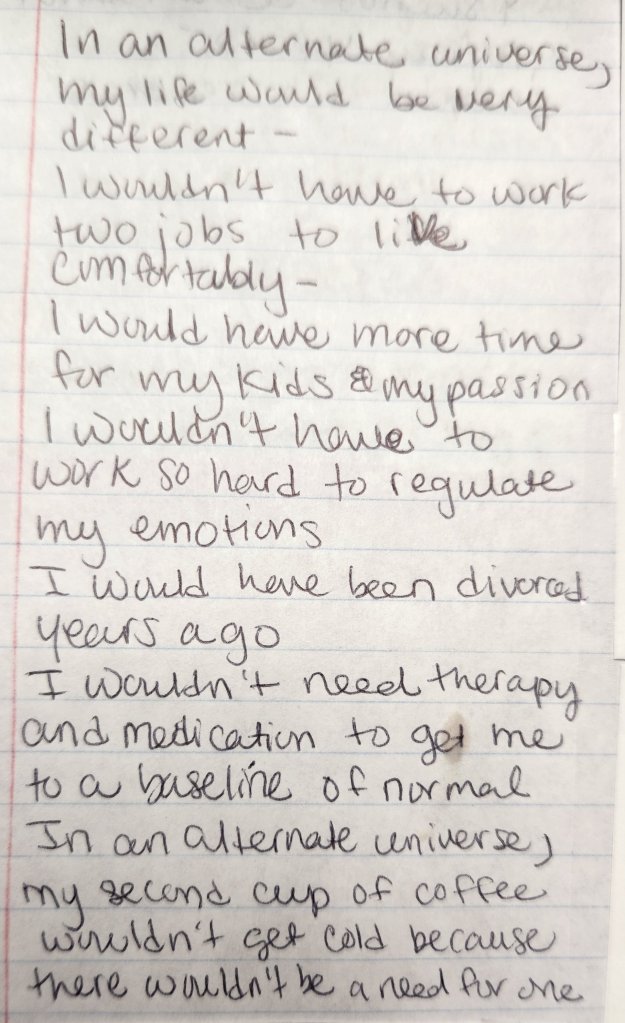 In an alternate universe,
my life would be very
different -
I wouldn't have to work
two jobs to live
comfortably -
I would have more time
for my kids & my passion
I wouldn't have to
work so hard to regulate
my emotions
I would have been divorced
years ago
I wouldn't need therapy
and medication to get me
to a baseline of normal
In an alternate universe,
my second cup of coffee
wouldn't get cold because
there wouldn't be a need for one